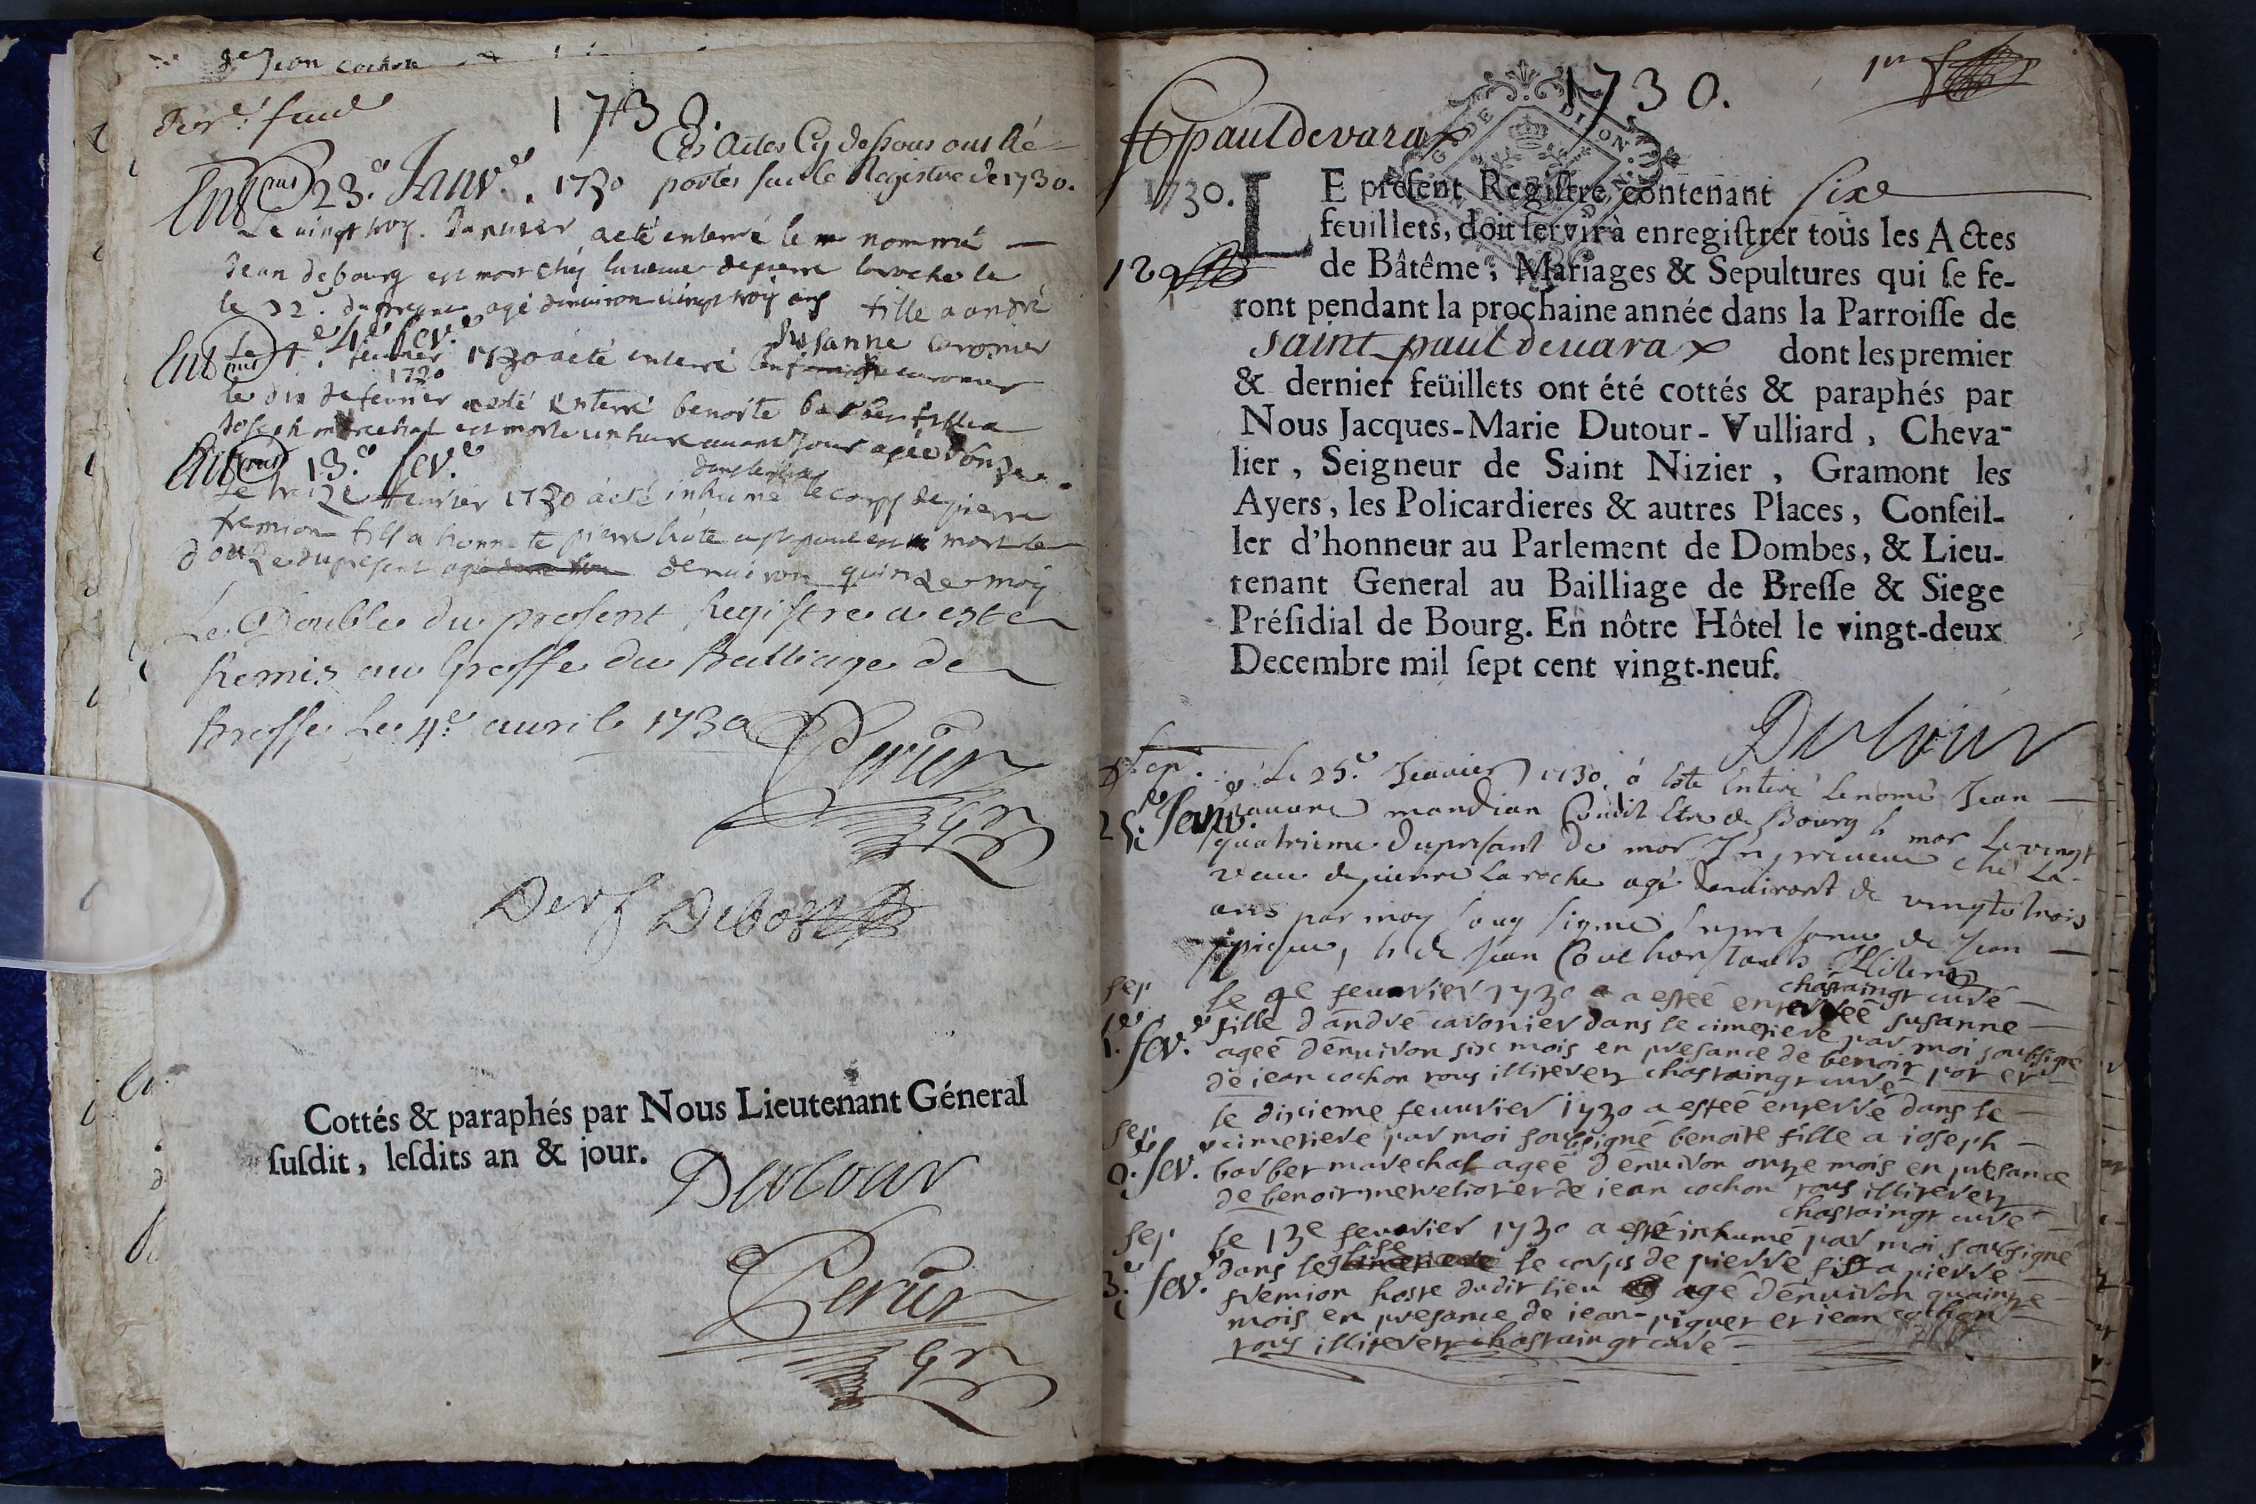 de Jean cochon
1730.
Les actes Cy dessous ont été
portés sur le Registre de 1730.
Ent 23.e Janv. 1730
Le vingt troy. Januier a eté enterré le nommé
Jean de bourg est mort chéz la veuve de pierre laroche le
le 22.e du present agé d'enuiron vingt troy ans
fille a andré
Susanne caronier
Ent 4e fev.
Le 4.e feurier 1730 a eté enterré
1730
le dix de feurier a eté enterré benoite barber fille a
Joseph marechal est morte une heure auant Jour agée d'onze
Ent 13.e fev.
dans
Le treize feurier 1730 a eté inhumé le corps de pierre
fremion fils a honnete pierre hote a st paul est mort le
douze du present agé d'enuiron quinze moy
Le Double du present Registre a esté
Remis au Greffe du Bailliage de
Bresse Le 4.e auril 1730
Perier
Cottés & paraphés par Nous Lieutenant Géneral
susdit, lesdits an & jour.
Dutour
Perier
1730.
St paul de varax
1730.
LE présent Registre contenant six
feuillets, doit servir à enregistrer tous les Actes
de Bâtême, Mariages & Sepultures qui se fe-
ront pendant la prochaine année dans la Parroisse de
saint paul de uarax dont les premier
& dernier feüillets ont été cottés & paraphés par
Nous Jacques-Marie Dutour-Vulliard, Cheva-
lier, Seigneur de Saint Nizier, Gramont les
Ayers, les Policardieres & autres Places, Conseil-
ler d'honneur au Parlement de Dombes, & Lieu-
tenant General au Bailliage de Bresse & Siege
Présidial de Bourg. En nôtre Hôtel le vingt-deux
Decembre mil sept cent vingt-neuf.
Dutour
Sep.
25.e Janv.
Le 25.e Jeanuier 1730 a esté Enteré Le nomé Jean
pauure mandian soudit Etre de Bourg mor Le vingt
quatrieme du presant de mor Inpreueue ché La
veuue de pierre La roche agé danuiront de vingte trois
ans par moy sousigné En presance de Jean
piquet, et de Jean Couchon tous Illiterez
chastaingt curé
sep
4.e fev.
le 4e feuvrier 1730 a estée enterrée susanne
fille d'andré caronier dans le cimetiere par moi soubsigné
ageé d'enuiron six mois en presance de benoit
de iean cochon tous illiterez chastaingt curé
sep
10.e fev.
le dixieme feuurier 1730 a estéé enterré dans le
cimetiere par moi soubsigné benoite fille a ioseph
barber marechal ageé d'enuiron onze mois en presance
de benoit et de iean cochon tous illiterez
chastaingt curé
sep
13.e fev.
le 13e feuvrier 1730 a esté inhumé par moi soubsigné
dans leglise le corps de pierre fils a pierre
fremion hoste dudit lieu agé d'enuiron quainze
mois en presance de iean piquet et iean cochon
tous illiterez chastaingt curé